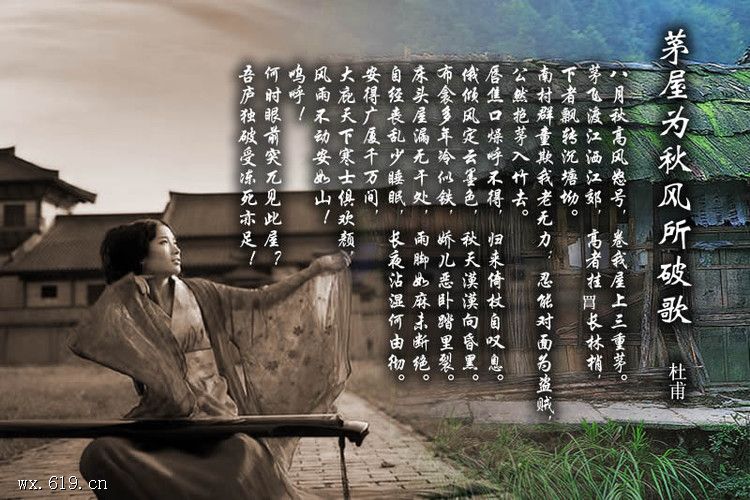 茅屋为秋风所破歌
杜甫
八月秋高风怒号，卷我屋上三重茅。
茅飞渡江洒江郊，高者挂罥长林梢，
下者飘转沉塘坳。
南村群童欺我老无力，忍能对面为盗贼，
公然抱茅入竹去。
唇焦口燥呼不得，归来倚杖自叹息。
俄倾风定云墨色，秋天漠漠向昏黑。
布衾多年冷似铁，娇儿恶卧踏里裂。
床头屋漏无干处，雨脚如麻未断绝。
自经丧乱少睡眠，长夜沾湿何由彻。
安得广厦千万间，
大庇天下寒士俱欢颜，
风雨不动安如山！
呜呼！
何时眼前突兀见此屋？
吾庐独破受冻死亦足！
wx.619.cn